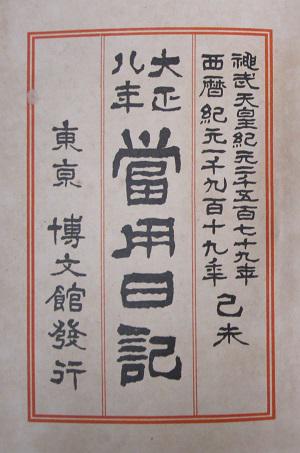 神武天皇紀元二千五百七十九年
西曆紀元一千九百十九年 己未
大正八年
當用日記
東京 博文館發行